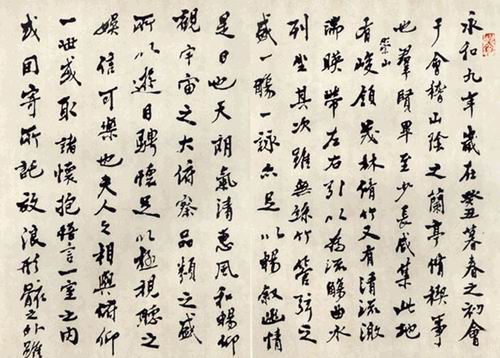 永和九年歲在癸丑暮春之初會
于會稽山陰之蘭亭脩禊事
也羣賢畢至少長咸集此地
有崇山峻領茂林脩竹又有清流激
湍暎帶左右引以為流觴曲水
列坐其次雖無絲竹管弦之
盛一觴一詠亦足以暢敘幽情
是日也天朗氣清惠風和暢仰
觀宇宙之大俯察品類之盛
所以遊目騁懷足以極視聽之
娛信可樂也夫人之相與俯仰
一世或取諸懷抱悟言一室之內
或因寄所託放浪形骸之外雖